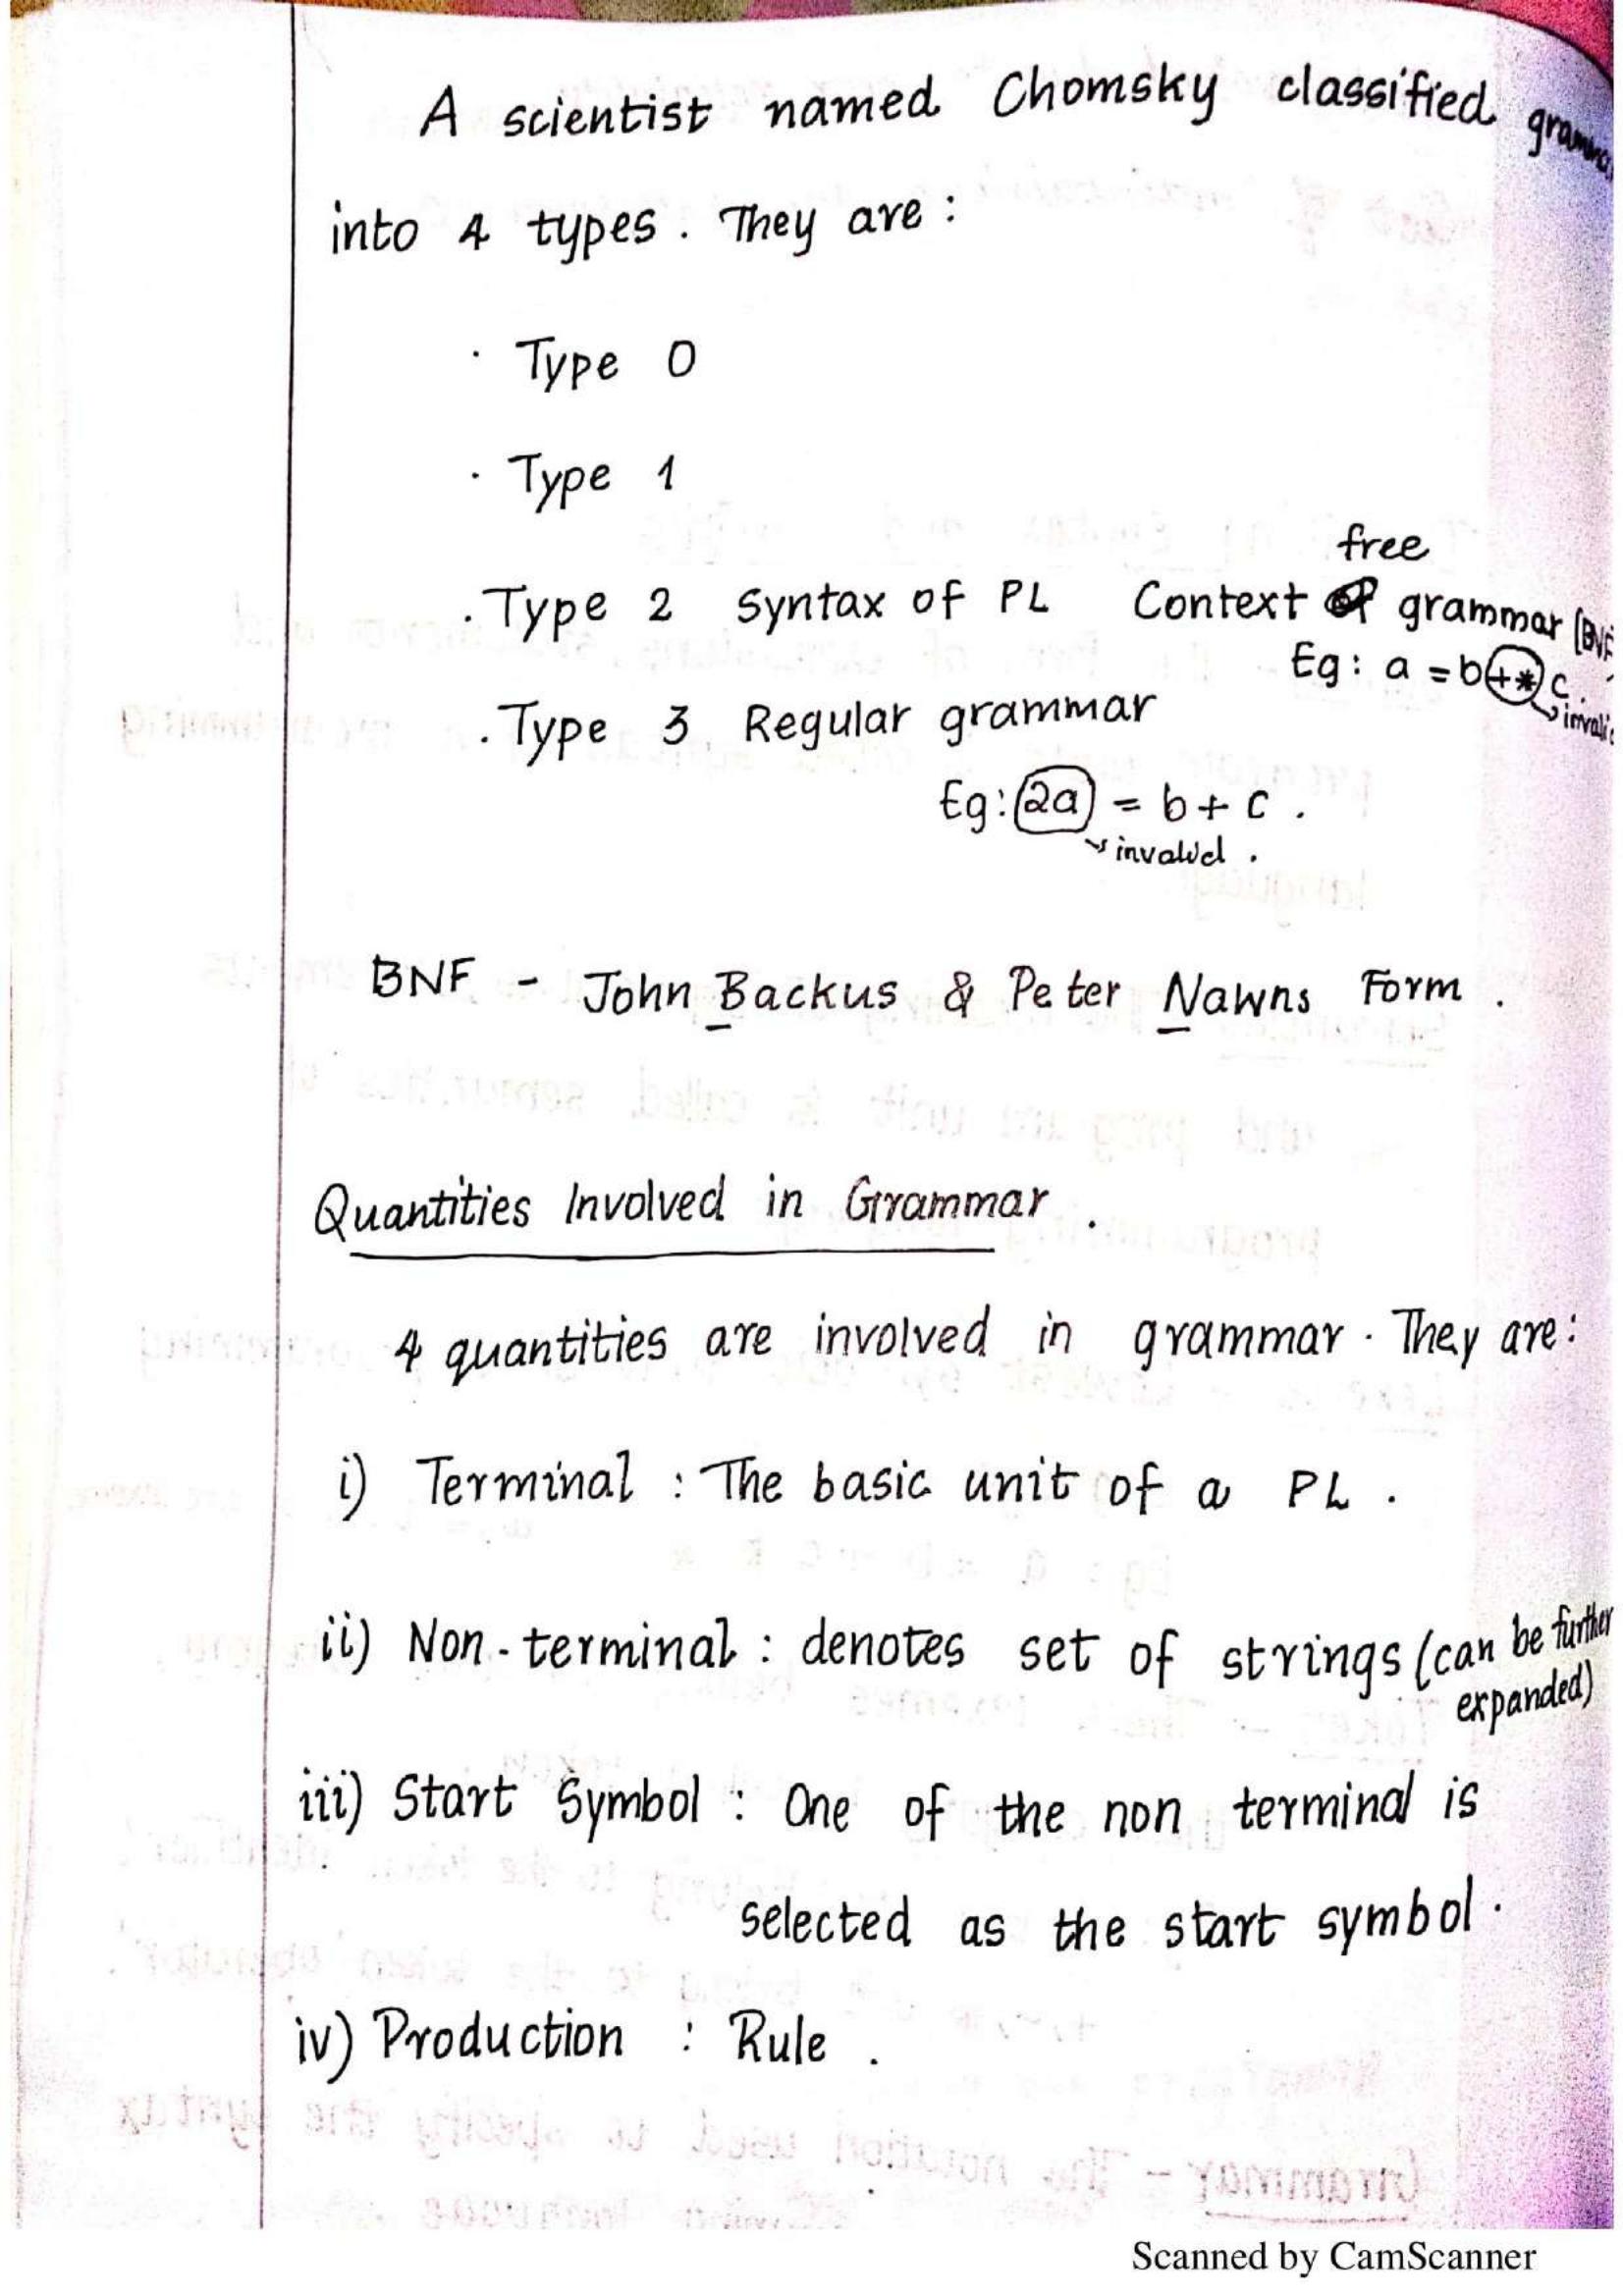 A scientist named Chomsky classified
into 4 types. They are :
· Type 0
· Type 1
free
. Type 2 Syntax of PL Context grammar (BNF
Eg : a = b +* c .
→ invalid
. Type 3 Regular grammar
Eg : 2a = b + c .
→ invalid .
BNF - John Backus & Peter Nawns Form .
Quantities Involved in Grammar .
4 quantities are involved in grammar . They are :
i) Terminal : The basic unit of a PL .
ii) Non - terminal : denotes set of strings (can be further
expanded)
iii) Start Symbol : One of the non terminal is
selected as the start symbol .
iv) Production : Rule .
Scanned by CamScanner